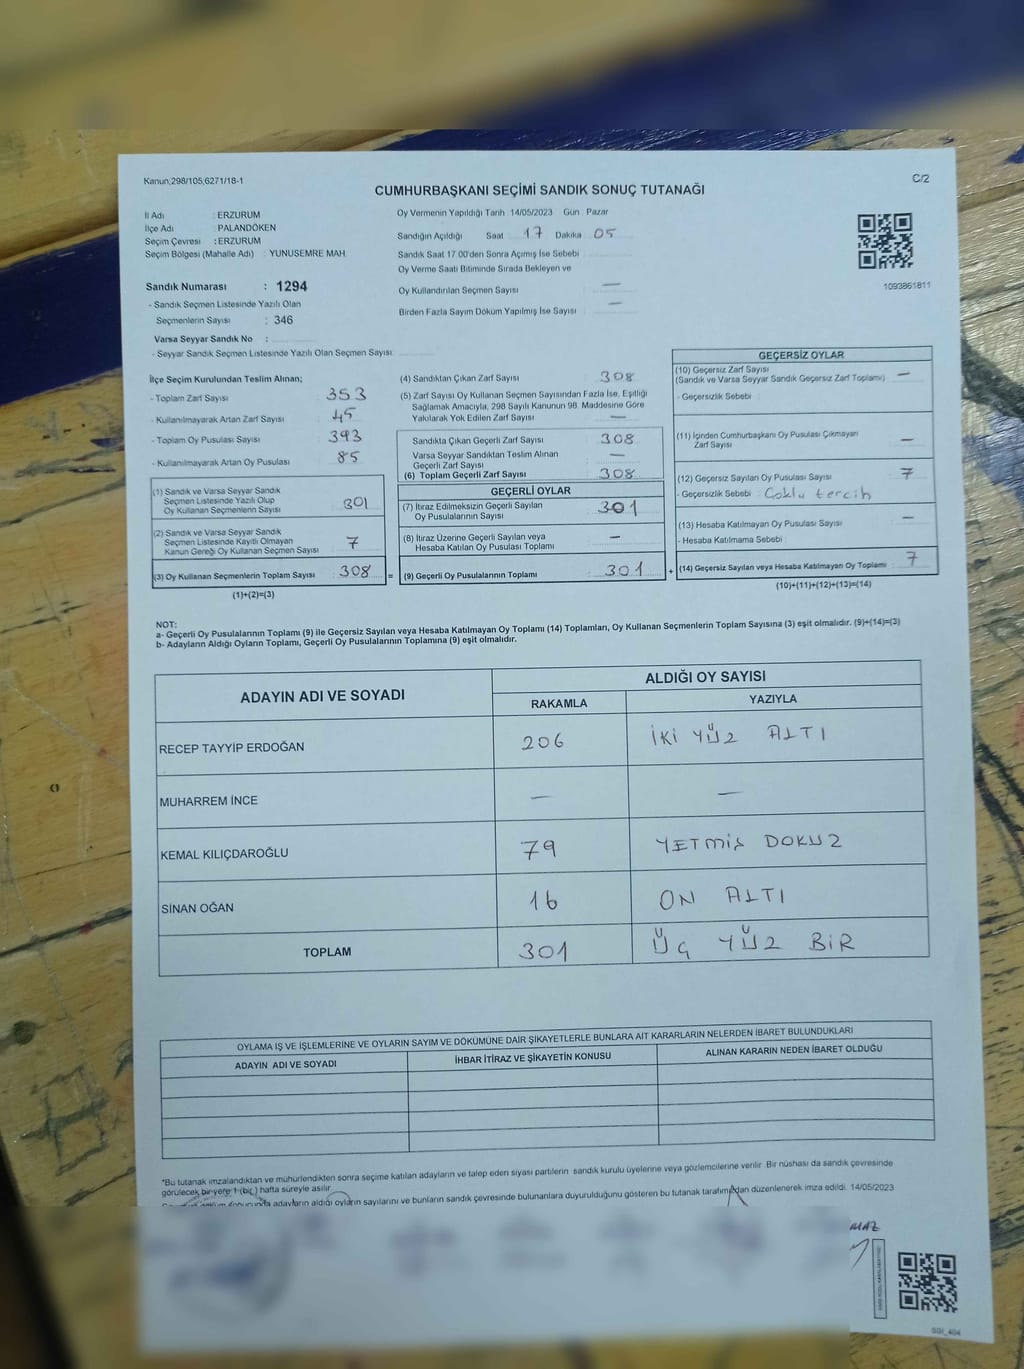 Kanun;298/105;6271/18-1
C/2
CUMHURBAŞKANI SEÇİMİ SANDIK SONUÇ TUTANAĞI
İl Adı : ERZURUM
İlçe Adı : PALANDÖKEN
Seçim Çevresi : ERZURUM
Seçim Bölgesi (Mahalle Adı) : YUNUSEMRE MAH.
Oy Vermenin Yapıldığı Tarih 14/05/2023 Gün Pazar
Sandığın Açıldığı Saat 17 Dakika 05
Sandık Saat 17.00'den Sonra Açımış İse Sebebi
Oy Verme Saati Bitiminde Sırada Bekleyen ve
Oy Kullandırılan Seçmen Sayısı : —
Birden Fazla Sayım Döküm Yapılmış İse Sayısı : —
1093861811
Sandık Numarası : 1294
- Sandık Seçmen Listesinde Yazılı Olan
Seçmenlerin Sayısı : 346
Varsa Seyyar Sandık No :
- Seyyar Sandık Seçmen Listesinde Yazılı Olan Seçmen Sayısı:
İlçe Seçim Kurulundan Teslim Alınan;
- Toplam Zarf Sayısı : 353
- Kullanılmayarak Artan Zarf Sayısı : 45
- Toplam Oy Pusulası Sayısı : 393
- Kullanılmayarak Artan Oy Pusulası : 85
(1) Sandık ve Varsa Seyyar Sandık
Seçmen Listesinde Yazılı Olup
Oy Kullanan Seçmenlerin Sayısı : 301
(2) Sandık ve Varsa Seyyar Sandık
Seçmen Listesinde Kayıtlı Olmayan
Kanun Gereği Oy Kullanan Seçmen Sayısı : 7
(3) Oy Kullanan Seçmenlerin Toplam Sayısı : 308
(1)+(2)=(3)
(4) Sandıktan Çıkan Zarf Sayısı : 308
(5) Zarf Sayısı Oy Kullanan Seçmen Sayısından Fazla İse, Eşitliği
Sağlamak Amacıyla, 298 Sayılı Kanunun 98. Maddesine Göre
Yakılarak Yok Edilen Zarf Sayısı : —
Sandıkta Çıkan Geçerli Zarf Sayısı : 308
Varsa Seyyar Sandıktan Teslim Alınan
Geçerli Zarf Sayısı : —
(6) Toplam Geçerli Zarf Sayısı : 308
GEÇERLİ OYLAR
(7) İtiraz Edilmeksizin Geçerli Sayılan
Oy Pusulalarının Sayısı : 301
(8) İtiraz Üzerine Geçerli Sayılan veya
Hesaba Katılan Oy Pusulası Toplamı : —
= (9) Geçerli Oy Pusulalarının Toplamı : 301
GEÇERSİZ OYLAR
(10) Geçersiz Zarf Sayısı
(Sandık ve Varsa Seyyar Sandık Geçersiz Zarf Toplamı) : —
- Geçersizlik Sebebi :
(11) İçinden Cumhurbaşkanı Oy Pusulası Çıkmayan
Zarf Sayısı : —
(12) Geçersiz Sayılan Oy Pusulası Sayısı : 7
- Geçersizlik Sebebi : Çoklu tercih
(13) Hesaba Katılmayan Oy Pusulası Sayısı : —
- Hesaba Katılmama Sebebi :
+ (14) Geçersiz Sayılan veya Hesaba Katılmayan Oy Toplamı : 7
(10)+(11)+(12)+(13)=(14)
NOT:
a- Geçerli Oy Pusulalarının Toplamı (9) ile Geçersiz Sayılan veya Hesaba Katılmayan Oy Toplamı (14) Toplamları, Oy Kullanan Seçmenlerin Toplam Sayısına (3) eşit olmalıdır. (9)+(14)=(3)
b- Adayların Aldığı Oyların Toplamı, Geçerli Oy Pusulalarının Toplamına (9) eşit olmalıdır.
ADAYIN ADI VE SOYADI
ALDIĞI OY SAYISI
RAKAMLA YAZIYLA
RECEP TAYYİP ERDOĞAN 206 İKİ YÜZ ALTI
MUHARREM İNCE — —
KEMAL KILIÇDAROĞLU 79 YETMİŞ DOKUZ
SİNAN OĞAN 16 ON ALTI
TOPLAM 301 ÜÇ YÜZ BİR
OYLAMA İŞ VE İŞLEMLERİNE VE OYLARIN SAYIM VE DÖKÜMÜNE DAİR ŞİKAYETLERLE BUNLARA AİT KARARLARIN NELERDEN İBARET BULUNDUKLARI
ADAYIN ADI VE SOYADI İHBAR İTİRAZ VE ŞİKAYETİN KONUSU ALINAN KARARIN NEDEN İBARET OLDUĞU
*Bu tutanak imzalandıktan ve mühürlendikten sonra seçime katılan adayların ve talep eden siyasi partilerin sandık kurulu üyelerine veya gözlemcilerine verilir. Bir nüshası da sandık çevresinde
görülecek bir yere 1 (bir) hafta süreyle asılır.
adayların aldığı oyların sayılarını ve bunların sandık çevresinde bulunanlara duyurulduğunu gösteren bu tutanak tarafımızdan düzenlenerek imza edildi. 14/05/2023